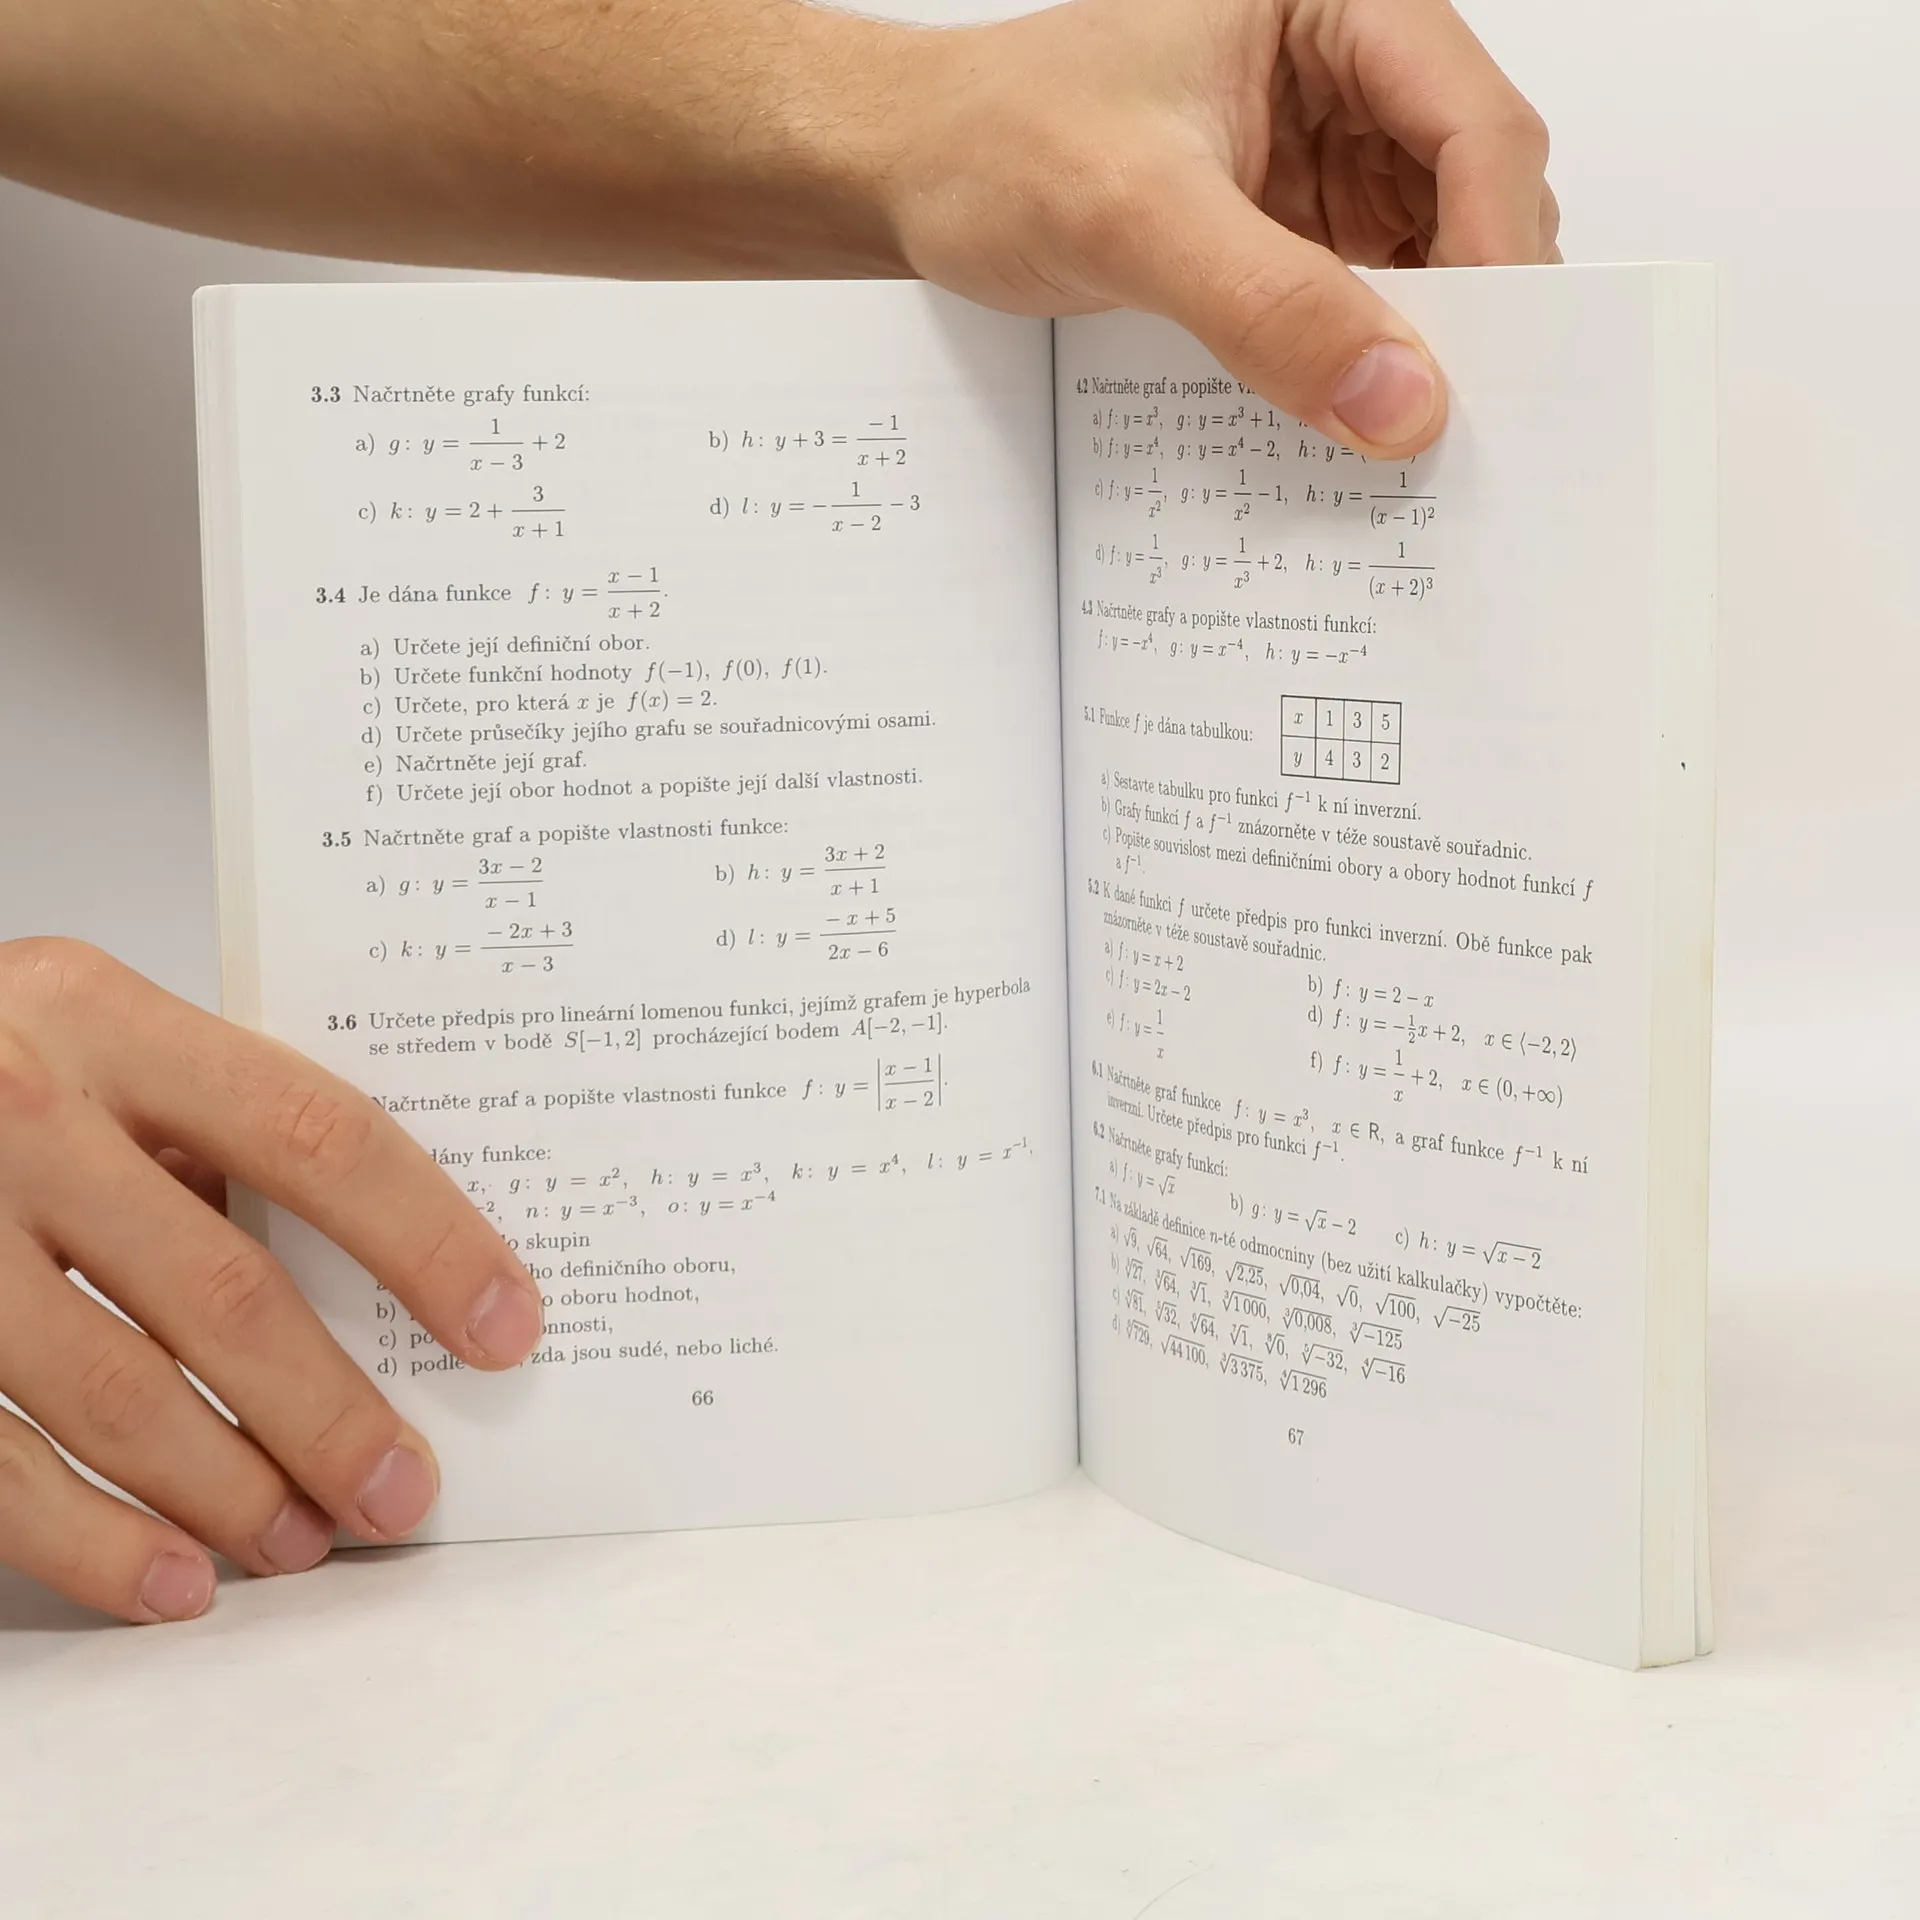 3.3 Načrtněte grafy funkcí:
a) g: y = 1/(x − 3) + 2 b) h: y + 3 = −1/(x + 2)
c) k: y = 2 + 3/(x + 1) d) l: y = −1/(x − 2) − 3
3.4 Je dána funkce f: y = (x − 1)/(x + 2).
a) Určete její definiční obor.
b) Určete funkční hodnoty f(−1), f(0), f(1).
c) Určete, pro která x je f(x) = 2.
d) Určete průsečíky jejího grafu se souřadnicovými osami.
e) Načrtněte její graf.
f) Určete její obor hodnot a popište její další vlastnosti.
3.5 Načrtněte graf a popište vlastnosti funkce:
a) g: y = (3x − 2)/(x − 1) b) h: y = (3x + 2)/(x + 1)
c) k: y = (−2x + 3)/(x − 3) d) l: y = (−x + 5)/(2x − 6)
3.6 Určete předpis pro lineární lomenou funkci, jejímž grafem je hyperbola
se středem v bodě S[−1, 2] procházející bodem A[−2, −1].
Načrtněte graf a popište vlastnosti funkce f: y = |(x − 1)/(x − 2)|.
dány funkce:
x, g: y = x², h: y = x³, k: y = x⁴, l: y = x⁻¹,
⁻², n: y = x⁻³, o: y = x⁻⁴
skupin
definičního oboru,
b) oboru hodnot,
c)
d) podle zda jsou sudé, nebo liché.
66
4.2 Načrtněte graf a popište
a) f: y = x³, g: y = x³ + 1,
b) f: y = x⁴, g: y = x⁴ − 2, h: y =
c) f: y = 1/x², g: y = 1/x² − 1, h: y = 1/(x − 1)²
d) f: y = 1/x³, g: y = 1/x³ + 2, h: y = 1/(x + 2)³
4.3 Načrtněte grafy a popište vlastnosti funkcí:
f: y = −x⁴, g: y = x⁻⁴, h: y = −x⁻⁴
5.1 Funkce f je dána tabulkou:
x 1 3 5
y 4 3 2
a) Sestavte tabulku pro funkci f⁻¹ k ní inverzní.
b) Grafy funkcí f a f⁻¹ znázorněte v téže soustavě souřadnic.
c) Popište souvislost mezi definičními obory a obory hodnot funkcí f
a f⁻¹.
5.2 K dané funkci f určete předpis pro funkci inverzní. Obě funkce pak
znázorněte v téže soustavě souřadnic.
a) f: y = x + 2 b) f: y = 2 − x
c) f: y = 2x − 2 d) f: y = −½x + 2, x ∈ ⟨−2, 2)
e) f: y = 1/x f) f: y = 1/x + 2, x ∈ (0, +∞)
6.1 Načrtněte graf funkce f: y = x³, x ∈ R, a graf funkce f⁻¹ k ní
inverzní. Určete předpis pro funkci f⁻¹.
6.2 Načrtněte grafy funkcí:
a) f: y = √x b) g: y = √x − 2 c) h: y = √(x − 2)
7.1 Na základě definice n-té odmocniny (bez užití kalkulačky) vypočtěte:
a) √9, √64, √169, √2,25, √0,04, √0, √100, √−25
b) ∛27, ∛64, ∛1, ∛1 000, ∛0,008, ∛−125
c) ∜81, ⁵√32, ⁶√64, ⁷√1, ⁸√0, ⁵√−32, ∜−16
d) ⁶√729, √44 100, ∛3 375, ∜1 296
67